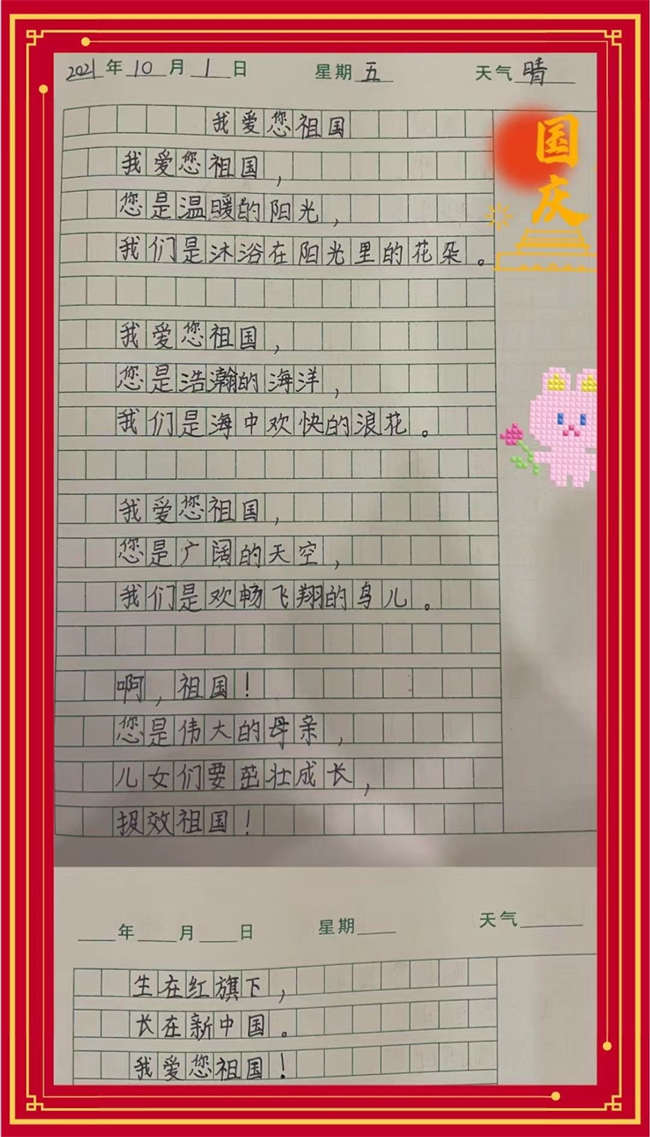 2021年10月1日 星期五 天气晴
国庆
我爱您祖国
我爱您祖国,
您是温暖的阳光,
我们是沐浴在阳光里的花朵。
我爱您祖国,
您是浩瀚的海洋,
我们是海中欢快的浪花。
我爱您祖国,
您是广阔的天空,
我们是欢畅飞翔的鸟儿。
啊,祖国!
您是伟大的母亲,
儿女们要茁壮成长,
报效祖国!
年 月 日 星期 天气
生在红旗下,
长在新中国。
我爱您祖国!